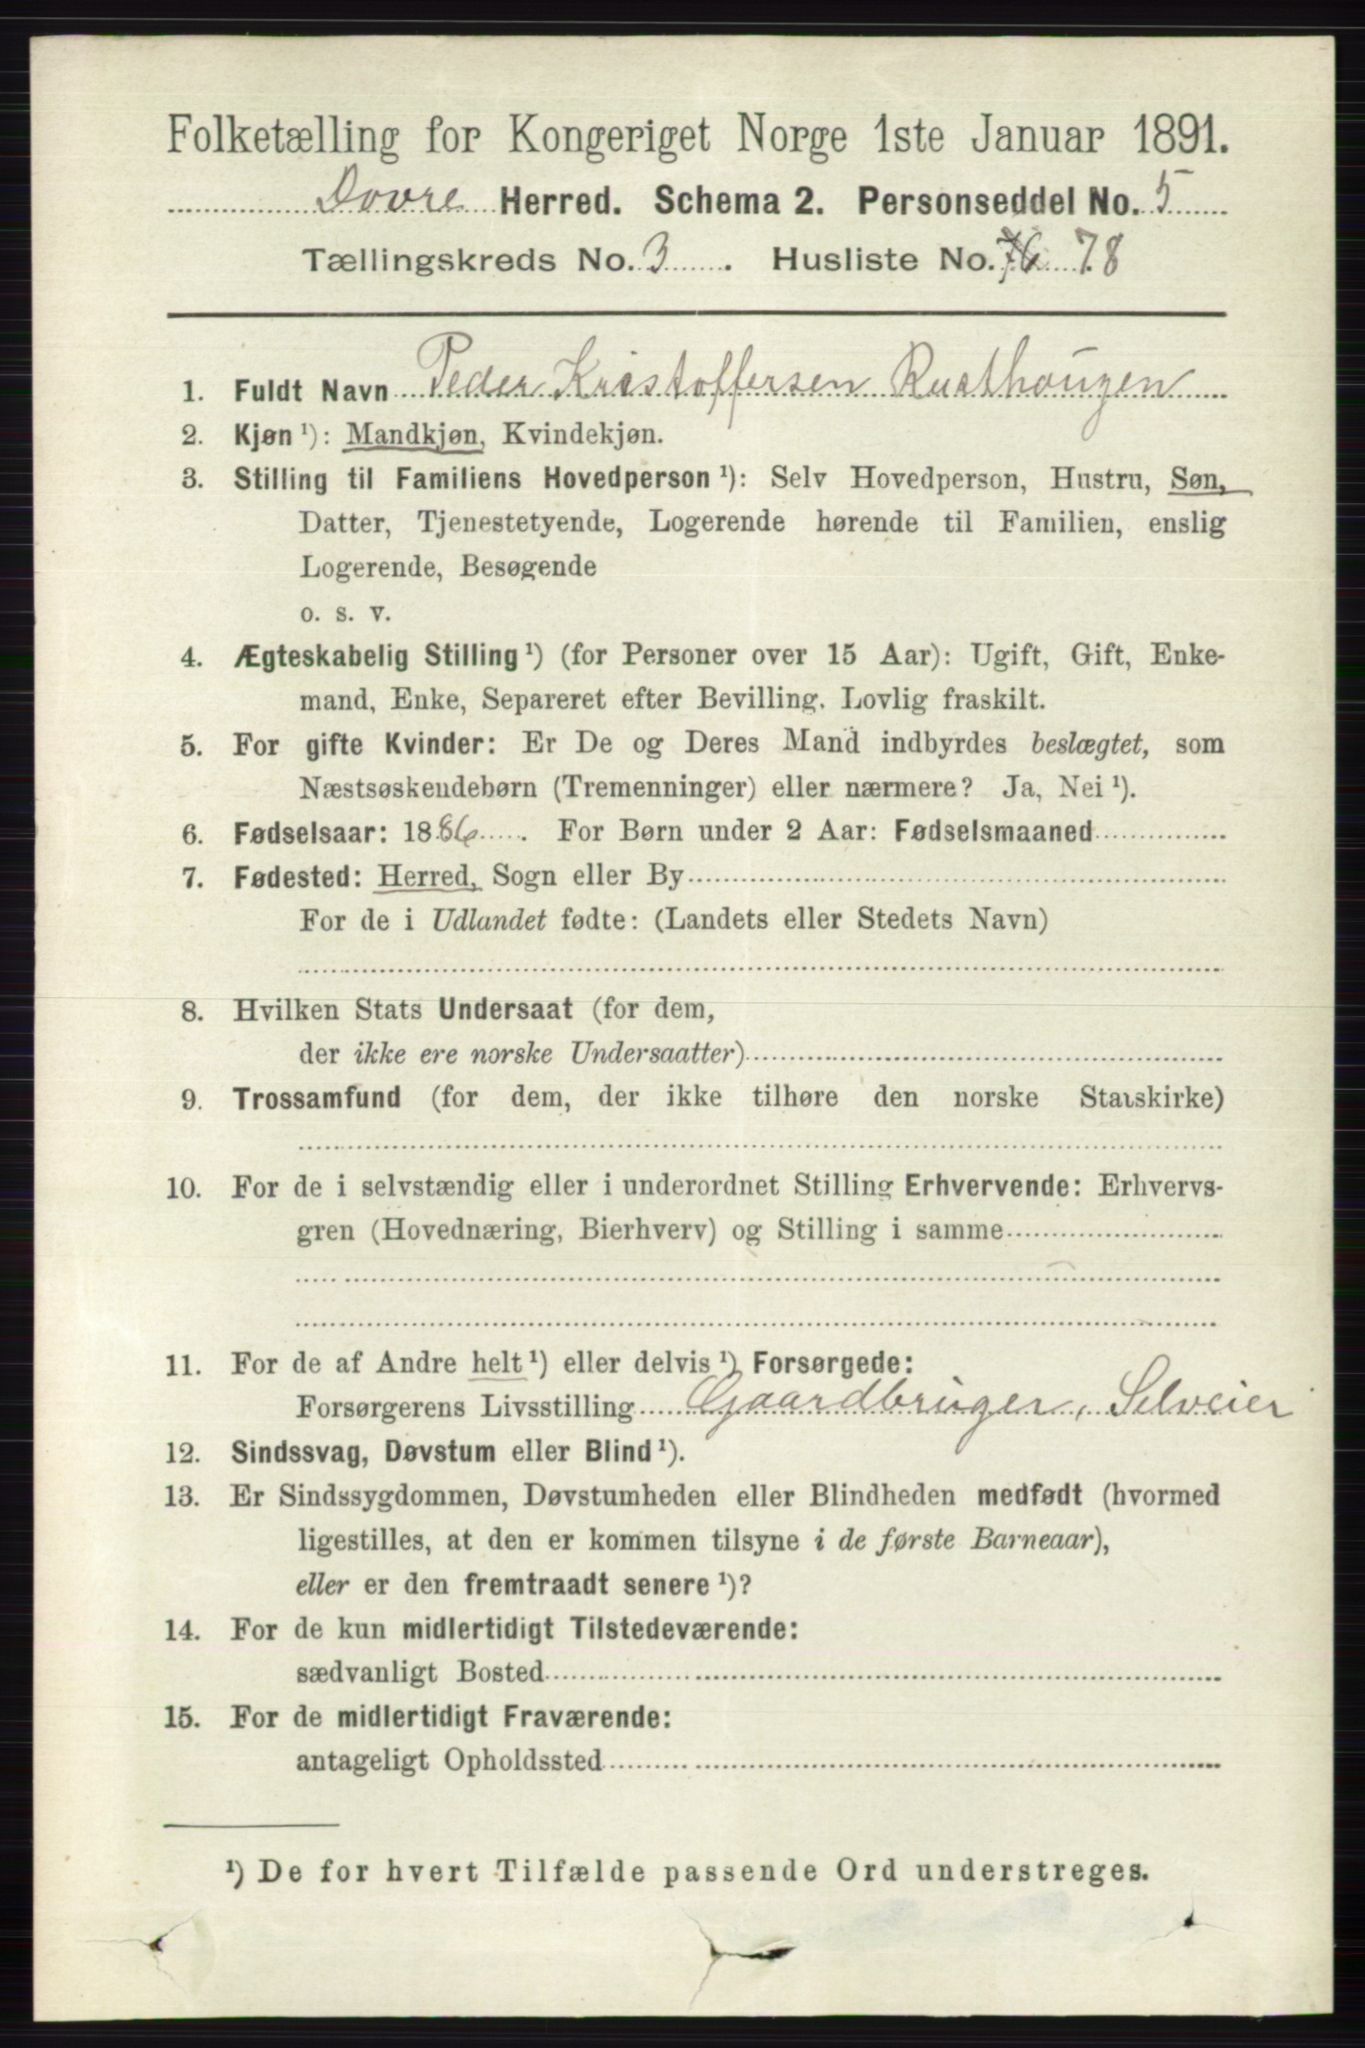 Folketælling for Kongeriget Norge 1ste Januar 1891.
Dovre Herred. Schema 2. Personseddel No. 5
Tællingskreds No. 3. Husliste No. 76 78
1. Fuldt Navn Peder Kristoffersen Rusthougen
2. Kjøn ¹): Mandkjøn, Kvindekjøn.
3. Stilling til Familiens Hovedperson ¹): Selv Hovedperson, Hustru, Søn,
Datter, Tjenestetyende, Logerende hørende til Familien, enslig
Logerende, Besøgende
o. s. v.
4. Ægteskabelig Stilling ¹) (for Personer over 15 Aar): Ugift, Gift, Enke-
mand, Enke, Separeret efter Bevilling. Lovlig fraskilt.
5. For gifte Kvinder: Er De og Deres Mand indbyrdes beslægtet, som
Næstsøskendebørn (Tremenninger) eller nærmere? Ja, Nei ¹).
6. Fødselsaar: 1886. For Børn under 2 Aar: Fødselsmaaned
7. Fødested: Herred, Sogn eller By
For de i Udlandet fødte: (Landets eller Stedets Navn)
8. Hvilken Stats Undersaat (for dem,
der ikke ere norske Undersaatter)
9. Trossamfund (for dem, der ikke tilhøre den norske Statskirke)
10. For de i selvstændig eller i underordnet Stilling Erhvervende: Erhvervs-
gren (Hovednæring, Bierhverv) og Stilling i samme
11. For de af Andre helt ¹) eller delvis ¹) Forsørgede:
Forsørgerens Livsstilling Gaardbruger, Selveier
12. Sindssvag, Døvstum eller Blind ¹).
13. Er Sindssygdommen, Døvstumheden eller Blindheden medfødt (hvormed
ligestilles, at den er kommen tilsyne i de første Barneaar),
eller er den fremtraadt senere ¹)?
14. For de kun midlertidigt Tilstedeværende:
sædvanligt Bosted
15. For de midlertidigt Fraværende:
antageligt Opholdssted
¹) De for hvert Tilfælde passende Ord understreges.